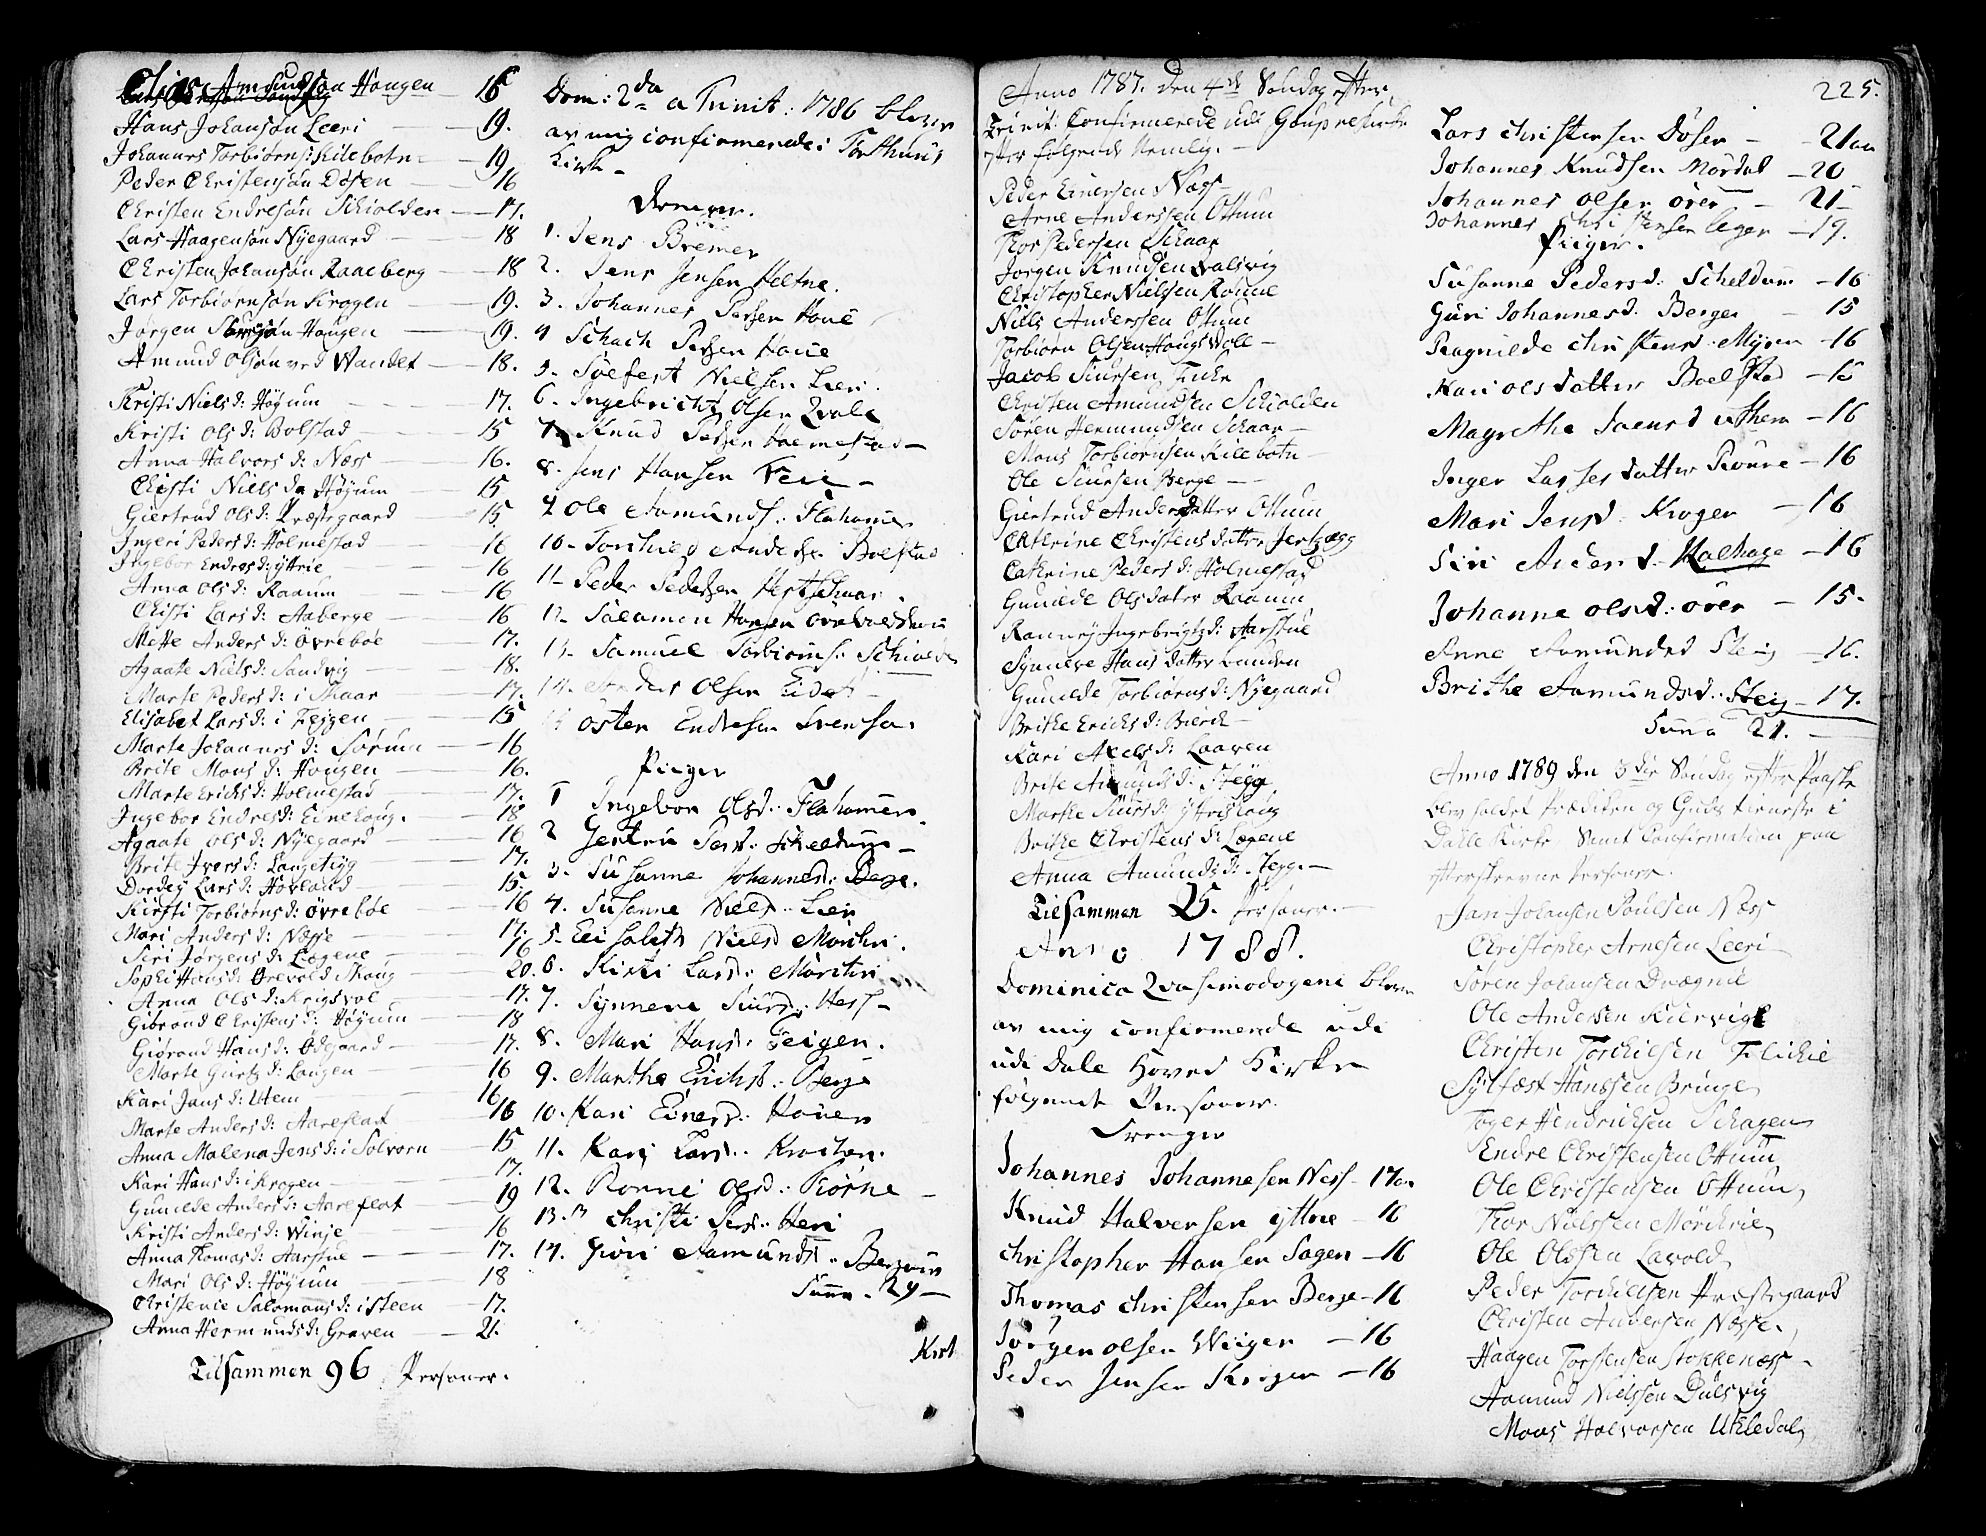 Elias Amundsøn Hougen — 16
Hans Johansøn Leeri — 19.
Johannes Torbiørns: Kilebotn — 19
Peder Christensøn Døsen — 16
Christen Endresøn Schiolden — 17.
Lars Haagensøn Nÿegaard — 18
Christen Johansøn Raaeberg — 18
Lars Torbiørnsøn Krogen — 19.
Jørgen Hougen — 19.
Amund Olsøn ved Vandet — 18.
Kristi Niels d: Høÿum — 17.
Kristi Ols d: Bolstad — 15
Anna Halvors d: Næss — 16.
Christi Niels d: Høÿum — 15
Giertrud Ols d: Præstegaard — 15.
Ingeri Peders d: Holmestad — 16
Ingebor Endres d: ÿttrie — 16
Anna Ols d: Raaum — 16
Christi Lars d: Aaberge — 16
Mette Anders d: Øvrebøe — 17.
Agaate Niels d: Sandvig — 18.
Marte Peders d: i Skaar — 17.
Elisabet Lars d: i Fejgen — 15
Marte Johannes d: Sørum — 16
Brite Mons d: Hougen — 16.
Marte Erichs d: Holmestad — 17.
Ingebor Endres d: — 18
Agaate Ols d: Nÿegaard — 16
Brite Ivers d: Langeteig — 17.
Dordeÿ Lars d: Hovland — 15.
Kirsti Torbiørns d: Øvrebøe — 16
Mari Anders d: Næsse — 17.
Siri Jørgens d: Lægene — 16
Sophi Hans d: — 20.
Anna Ols d: Krigsvol — 17.
Gibrand Christens d: Høÿum — 18
Giørand Hans d: Ødegaard — 17.
Marte d: Laugen — 16
Kari Jans d: Utem — 16
Marte Anders d: Aareflat — 16
Anna Malena Jens d: i Solvorn — 15
Kari Hans d: i Krogen — 17.
Gunilde Anders d: Aareflat — 19
Kristi Anders d: Winje — 16
Anna Thomas d: — 17.
Mari Ols d: Høÿum — 18
Christenie Salomons d: i Steen — 17.
Anna Hermunds d: Graven — 21.
Tilsammen 96 Personer.
Dom: 2da a Trinit: 1786 bleven
av mig confirmerede i
Kirke
Drenge.
1. Jens Bremer
2. Jens Jensen Heltne.
3. Johannes Persen Houe
4 Schach Persen Houe
5. Søefest Nielsen Leri.
6. Ingebricht Olsen Qvale
7. Knud Persen Holmestad —
8. Jens Hansen Feie —
9 Ole Aamunds: Flahamer
10. Torchild Anders: Bolstad
11. Peder Pedersen
12. Salamon Hansen
13. Samuel Torbiørns: Schiolde
14. Anders Olsen Eide
Østen Endresen
Piiger
1 Ingebor Olsd: Flahamer
2 Gertru Persd: Scheldum —
3. Susanne Johannesd: Berge.
4. Susanne Nielsd: Leri
5. Elisabeth Nielsd Mørchri.
6. Kirsti Larsd: Mørchri
7. Synneve Siursd: Hess —
8. Mari Hansd: Feigen.
9. Marthe Erichsd: Berge
10. Kari Einersd: Houen
11. Kari Larsd: Krochen.
12. Ronni Olsd: Rørne —
13. Christi Persd: Heri
14. Giøri Aamundsd: Bergum
Suma. 29 —
225.
Anno 1787. den 4de Søndag efter
Trinit: Confirmerede udi Gaupne Kirke
efter følgende Nemlig. —
Peder Einersen Næss
Arne Anderssen Ottum
Thor Pedersen Schaar
Jørgen Knudsen Dalsvig
Christopher Nielsen Roune
Niels Anderssen Ottum
Torbiørn Olsen —
Jacob Siursen
Christen Amundsen Schiolden
Søren Hermundsen Schaar —
Mons Torbiørnsen Kilebotn —
Ole Siursen Berge —
Giertrud Andersdatter Ottum
Cathrine Christensdatter
Cathrine Peders d: Holmestad
Gunilde Olsdatter Raaum
Rannvÿ Ingebrigts d:
Synneve Hansdatter Landen
Gunilde Torbiørns d: Nÿegaard
Brithe Erichs d:
Kari Axels d: Laaven
Brite Amunds d: Stegg
Marthe Siurs d:
Brithe Christens d: Lægene
Anna Amunds d: Steig. —
Tilsammen 25. Personer. —
Anno 1788.
Dominica Quasimodogeni bleven
av mig confirmerede udi
udi Dale Hoved Kirke
følgende Personer.
Drenger
Johannes Johannesen Ness — 17
Knud Halversen Yttrie — 16
Christopher Hansen Sagen — 16
Thomas Christensen Berge — 16
Jørgen Olsen Wiiger — 16
Peder Jensen Kroger — 16
Lars Christensen Døsen — 21
Johannes Knudsen Mordal — 20
Johannes Olsen Ører — 21
Johannes Christensen Leger — 19.
Piiger.
Susanne Pedersd: Scheldum — 16
Guri Johannesd: Berger — 15
Ragnilde Christensd: Mÿren — 16
Kari Olsdatter Boelstad — 16
Magrethe Jaensd: Uthem — 16
Inger Lassesdatter Roune — 16
Mari Jensd: Kroger — 16
Siri Andersd: — 16
Johanne Olsd: Ører — 15.
Anne Aamundsd Steig — 16.
Brithe Aamundsd: Steig — 17.
Suma 21. —
Anno 1789 den 3die Søndag efter Paaske
blev holdet Prædiken og Guds tieneste i
Dalle Kirke, Samt Confirmation paa
efterskrevne Personer.
Jan Johansen Poulsen Næss
Christopher Arnesen Leeri
Søren Johansen Drægnie
Ole Andersen Kiervig
Christen Torchielsen Flichie
Sylfæst Hanssen Bringe
Toger Hendrichsen Schagen
Endre Christensen Ottum
Ole Christensen Ottum
Thor Nielssen Mørchrie
Ole Olssen Lavold
Peder Torchielsen Præstegaard
Christen Andersen Næsse
Haagen Torstensen Stokkenæss
Aamund Nielssøn Dulsvig
Mons Halvorsen Ukledal